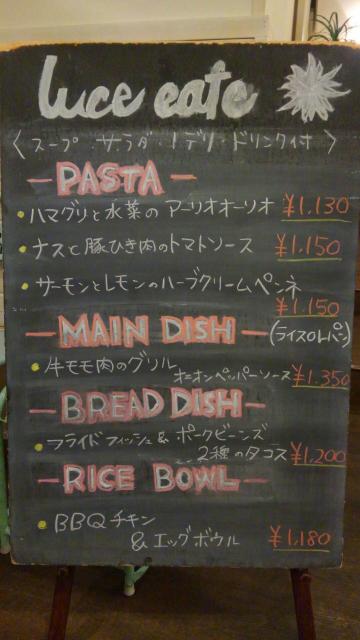 luce eate
〈スープ・サラダ・1デリ・ドリンク付〉
－PASTA－
・ハマグリと水菜のアーリオオーリオ ¥1,130
・ナスと豚ひき肉のトマトソース ¥1,150
・サーモンとレモンのハーブクリームペンネ
¥1,150
－MAIN DISH－(ライスorパン)
・牛モモ肉のグリル
オニオンペッパーソース ¥1,350
－BREAD DISH－
・フライドフィッシュ&ポークビーンズ
2種のタコス ¥1,200
－RICE BOWL－
・BBQチキン
&エッグボウル ¥1,180